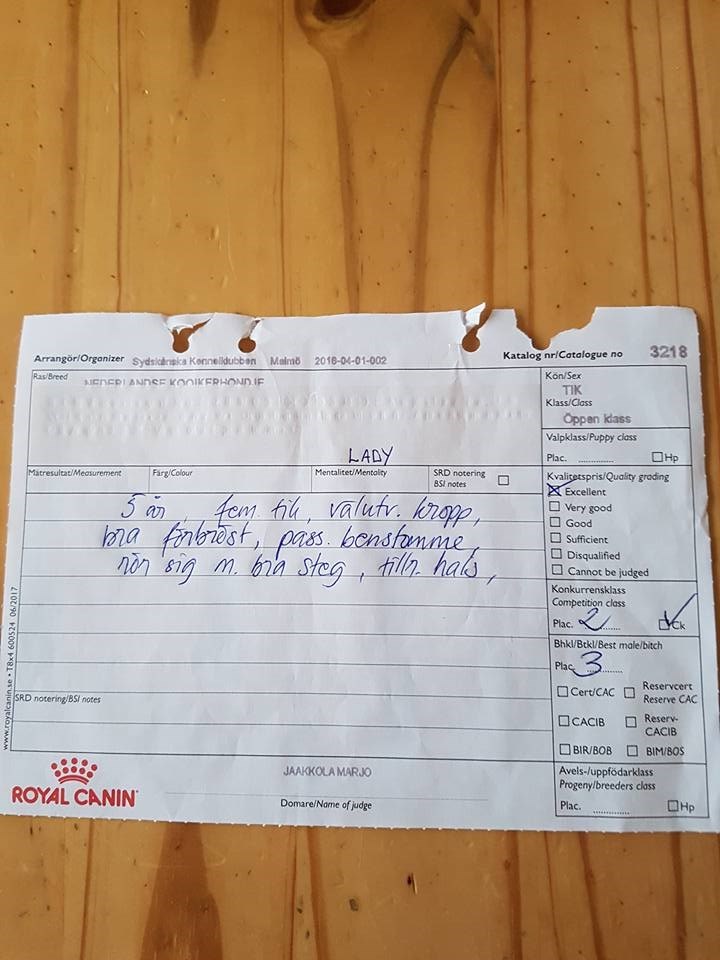 Arrangör/Organizer Sydskånska Kennelklubben Malmö 2018-04-01-002 Katalog nr/Catalogue no 3218
Ras/Breed NEDERLANDSE KOOIKERHONDJE
Kön/Sex
TIK
Klass/Class
Öppen klass
Valpklass/Puppy class
Plac. ............ Hp
LADY
Mätresultat/Measurement Färg/Colour Mentalitet/Mentality SRD notering
BSI notes
5 år, fem. tik, välutv. kropp,
bra förbröst, pass. benstomme,
rör sig m. bra steg, tillr. hals,
Kvalitetspris/Quality grading
Excellent
Very good
Good
Sufficient
Disqualified
Cannot be judged
Konkurrensklass
Competition class
Plac. 2 ........ Ck
Bhkl/Btkl/Best male/bitch
Plac. 3 ........
Cert/CAC Reservcert
Reserve CAC
CACIB Reserv-
CACIB
BIR/BOB BIM/BOS
Avels-/uppfödarklass
Progeny/breeders class
Plac. ............ Hp
SRD notering/BSI notes
www.royalcanin.se • T8x4 600524 06/2017
ROYAL CANIN
JAAKKOLA MARJO
Domare/Name of judge